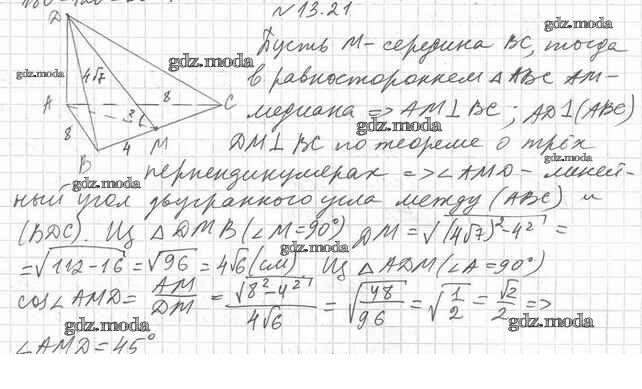 N 13.21
Пусть M - середина BC, тогда
в равностороннем △ABC AM-
медиана => AM⊥BC; AD⊥(ABC)
DM⊥BC по теореме о трёх
перпендикулярах => ∠AMD - линей-
ный угол двугранного угла между (ABC) и
(BDC). Из △DMB (∠M=90°) DM = √((4√7)²-4²) =
= √(112-16) = √96 = 4√6 (см) Из △ADM (∠A=90°)
cos∠AMD = AM/DM = √(8²-4²)/4√6 = √(48/96) = √(1/2) = √2/2 =>
∠AMD = 45°
D
4√7
A
8
C
8
B
4
M
gdz.moda
gdz.moda
gdz.moda
gdz.moda
gdz.moda
gdz.moda
gdz.moda
gdz.moda
gdz.moda
gdz.moda